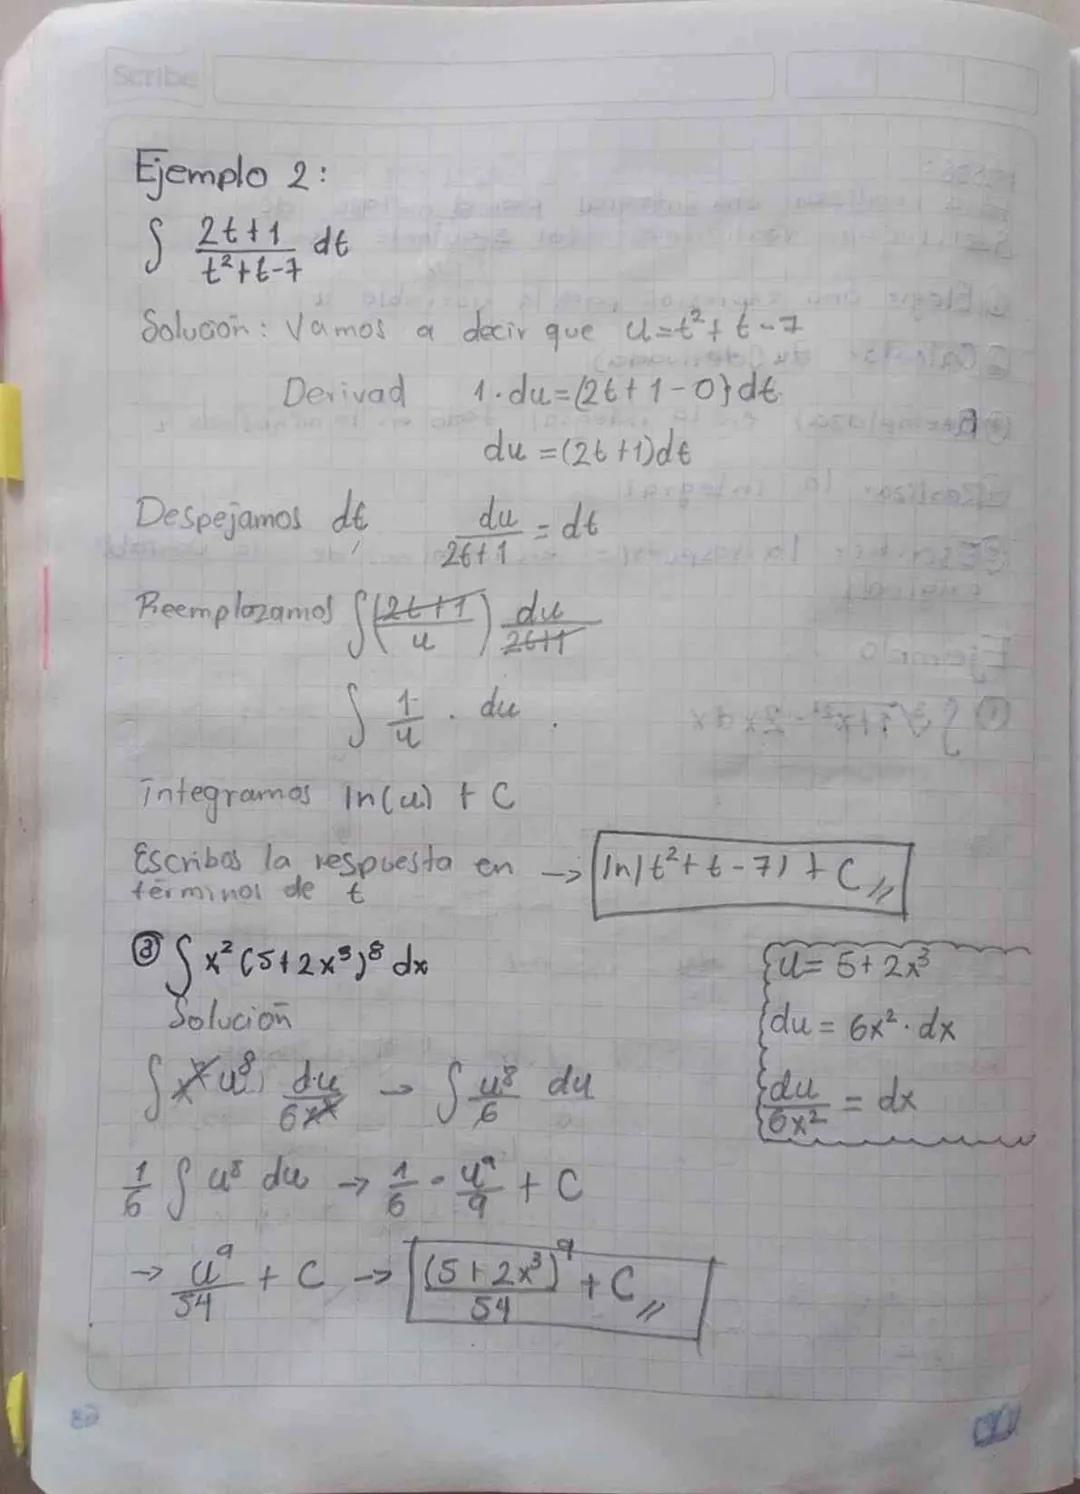 Scribe
Ejemplo 2:
∫ (2t+1)/(t²+t-7) dt
Solución: Vamos a decir que u=t²+t-7
Derivad 1·du=(2t+1-0)dt
du=(2t+1)dt
Despejamos dt, du/(2t+1) = dt
Reemplazamos ∫((2t+1)/u) du/(2t+1)
∫ 1/u · du.
integramos ln(u) + C
Escribos la respuesta en → ln|t²+t-7| + C
términos de t
③ ∫ x²(5+2x³)⁸ dx
Solución
u= 5+2x³
du = 6x²·dx
du/6x² = dx
∫x²u⁸ du/6x² → ∫ u⁸/6 du
1/6 ∫ u⁸ du → 1/6 · u⁹/9 + C
→ u⁹/54 + C → (5+2x³)⁹/54 + C